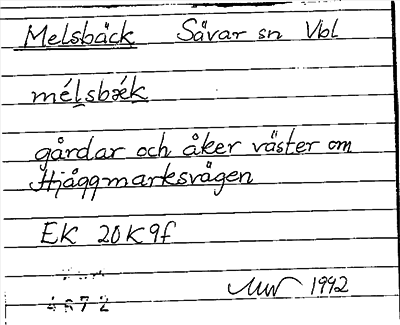 Melsbäck Sävar sn Vbl
mélsbæ̀k
gårdar och åker väster om
Hjåggmarksvägen
EK 20K9f
1992
4672